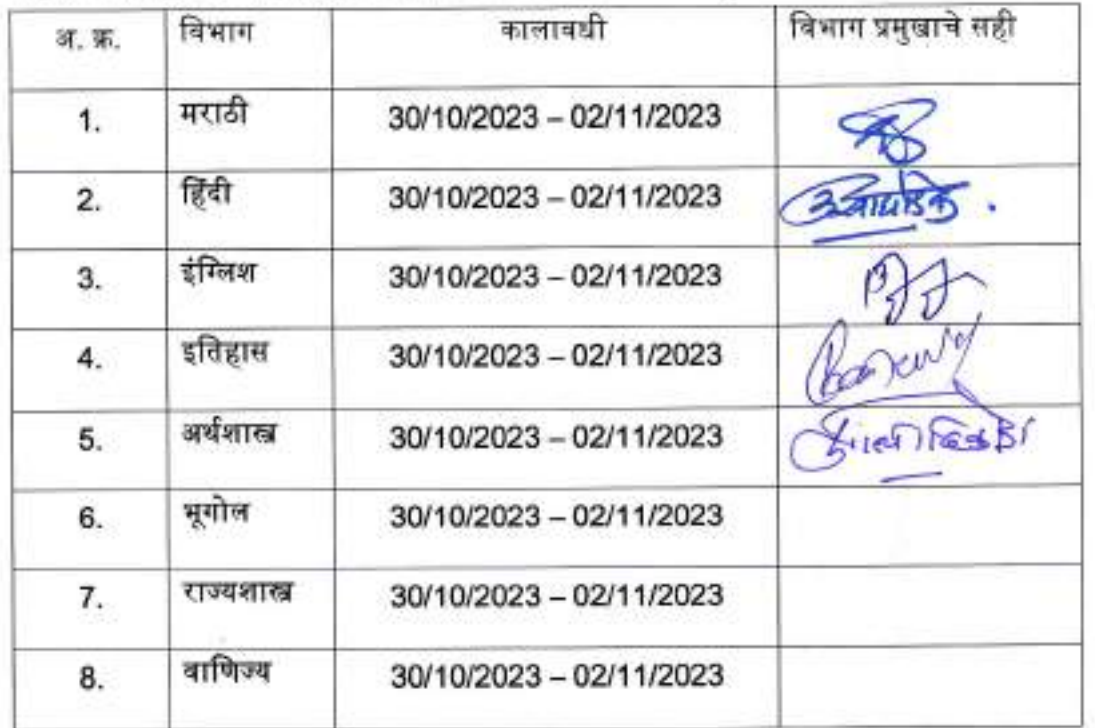 अ. क्र. विभाग कालावधी विभाग प्रमुखाचे सही
1. मराठी 30/10/2023 – 02/11/2023
2. हिंदी 30/10/2023 – 02/11/2023
3. इंग्लिश 30/10/2023 – 02/11/2023
4. इतिहास 30/10/2023 – 02/11/2023
5. अर्थशास्त्र 30/10/2023 – 02/11/2023
6. भूगोल 30/10/2023 – 02/11/2023
7. राज्यशास्त्र 30/10/2023 – 02/11/2023
8. वाणिज्य 30/10/2023 – 02/11/2023